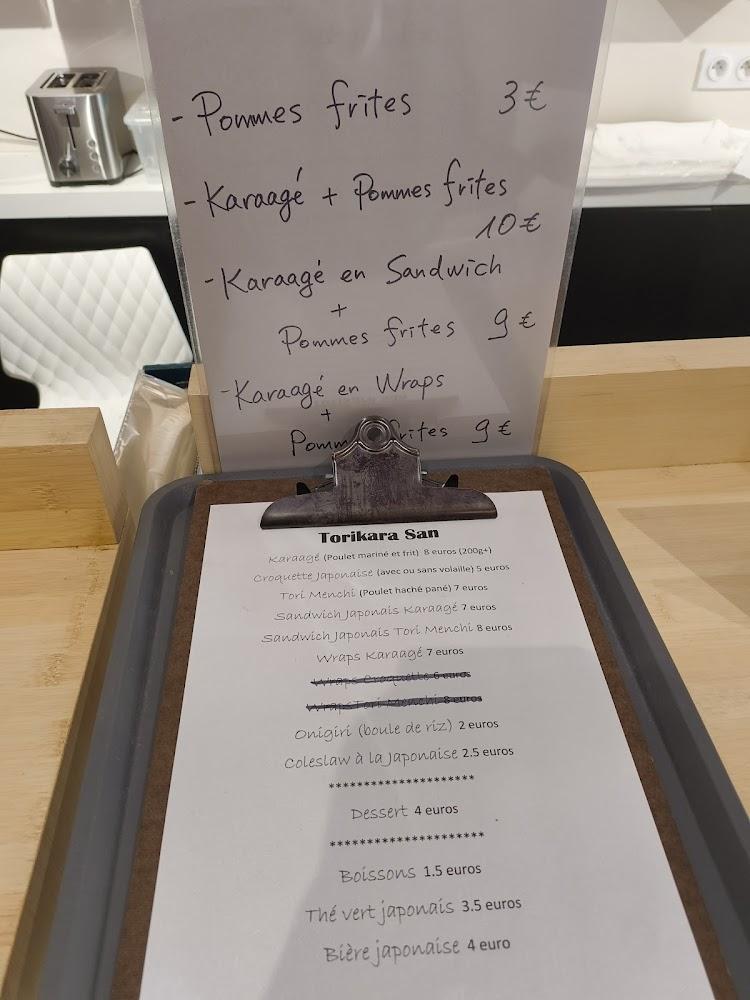 - Pommes frites 3€
- Karaagé + Pommes frites
10€
- Karaagé en Sandwich
+
Pommes frites 9€
- Karaagé en Wraps
+
Pomm frites 9€
Torikara San
Karaagé (Poulet mariné et frit) 8 euros (200g+)
Croquette Japonaise (avec ou sans volaille) 5 euros
Tori Menchi (Poulet haché pané) 7 euros
Sandwich Japonais Karaagé 7 euros
Sandwich Japonais Tori Menchi 8 euros
Wraps Karaagé 7 euros
Wraps Croquette 6 euros
Wraps Tori Menchi 8 euros
Onigiri (boule de riz) 2 euros
Coleslaw à la Japonaise 2.5 euros
*********************
Dessert 4 euros
*********************
Boissons 1.5 euros
Thé vert japonais 3.5 euros
Bière japonaise 4 euro